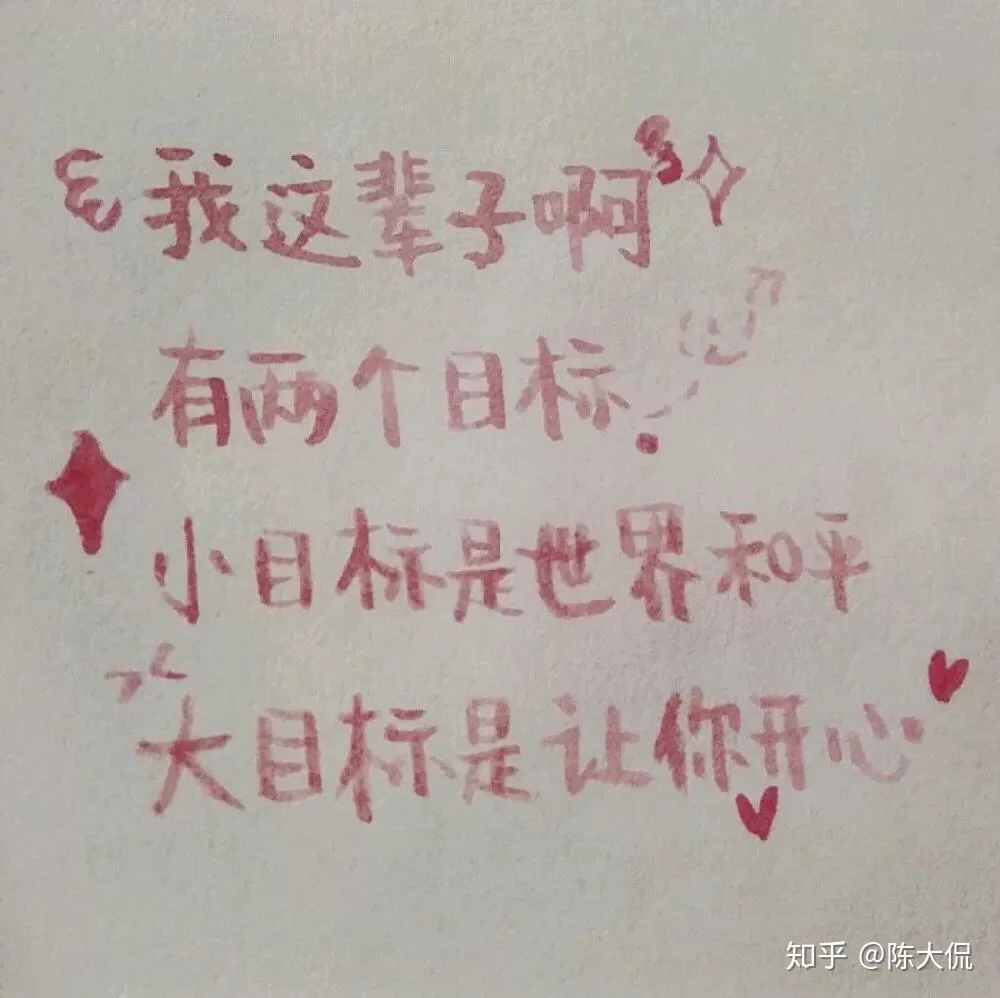 我这辈子啊
有两个目标
小目标是世界和平
大目标是让你开心
知乎 @陈大侃